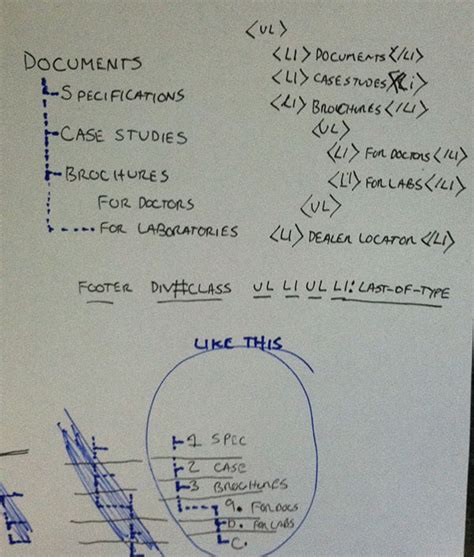 DOCUMENTS
SPECIFICATIONS
CASE STUDIES
BROCHURES
FOR DOCTORS
FOR LABORATORIES
<UL>
<LI> DOCUMENTS </LI>
<LI> CASE STUDES </Li>
<LI> BROCHURES </LI>
<UL>
<LI> FOR DOCTORS </LI>
<LI> FOR LABS </LI>
<UL>
<LI> DEALER LOCATOR </LI>
FOOTER DIV#CLASS UL LI UL LI:LAST-OF-TYPE
LIKE THIS
1 SPEC
2 CASE
3 BROCHURES
a. FOR DOCS
b. FOR LABS
C.